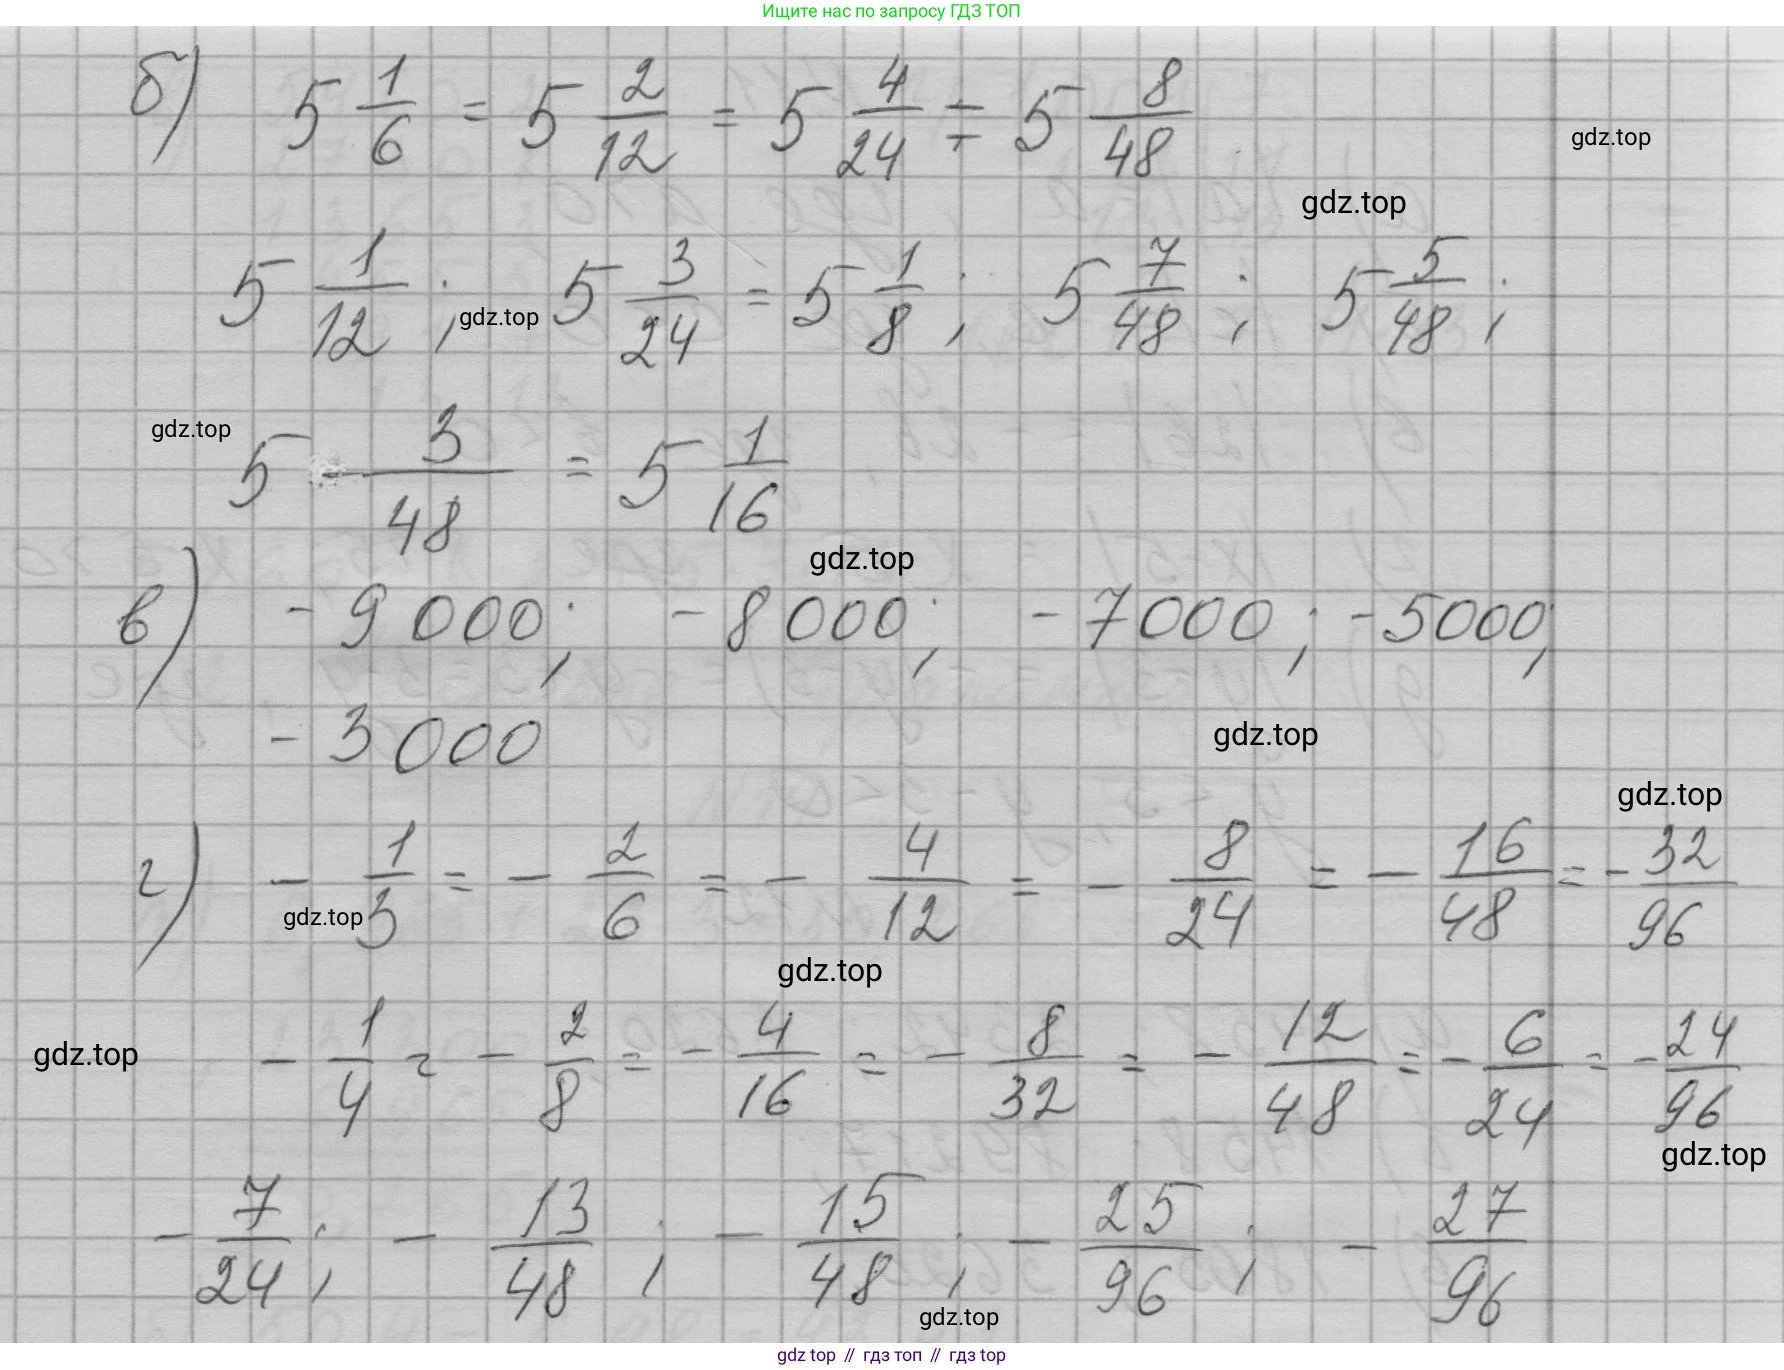 Ищите нас по запросу ГДЗ ТОП
б) 5 1/6 = 5 2/12 = 5 4/24 = 5 8/48
gdz.top
gdz.top
5 1/12 ; 5 3/24 = 5 1/8 ; 5 7/48 ; 5 5/48 ;
gdz.top
gdz.top
5 3/48 = 5 1/16
gdz.top
в) - 9 000; - 8 000; - 7000; -5000;
- 3 000
gdz.top
gdz.top
г) - 1/3 = - 2/6 = - 4/12 = - 8/24 = - 16/48 = - 32/96
gdz.top
gdz.top
gdz.top
- 1/4 = - 2/8 = - 4/16 = - 8/32 = - 12/48 = - 6/24 = - 24/96
gdz.top
- 7/24 ; - 13/48 ; - 15/48 ; - 25/96 ; - 27/96
gdz.top
gdz top // гдз топ // гдз top